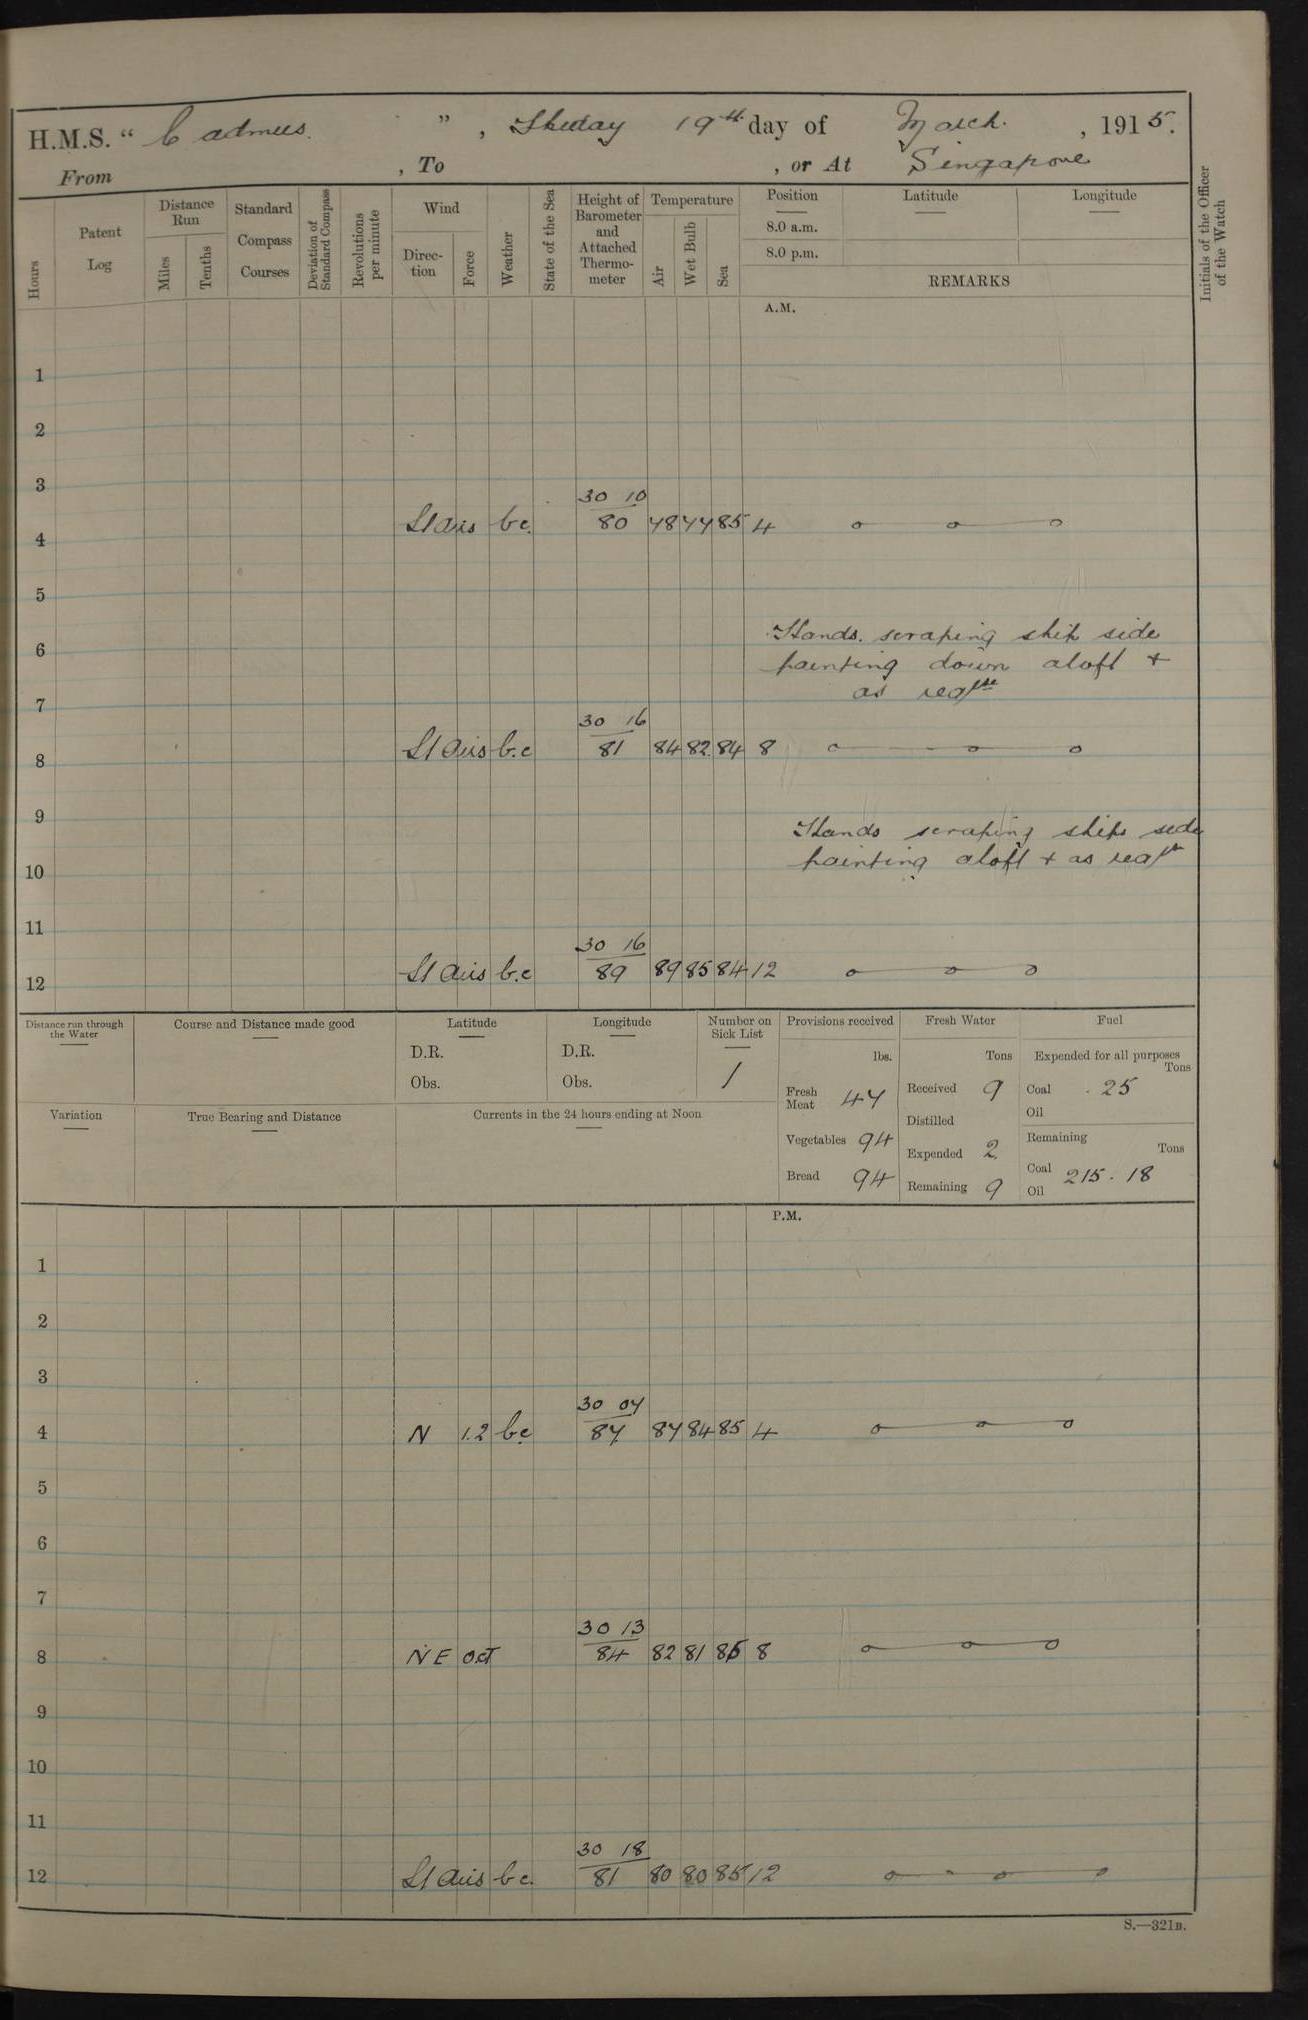 H.M.S. " Cadmus. " , day 19th day of March. , 1915.
From , To , or At Singapore
Hours
Patent Log
Distance Run
Miles
Tenths
Standard Compass Courses
Deviation of Standard Compass
Revolutions per minute
Wind
Direction
Force
Weather
State of the Sea
Height of Barometer and Attached Thermometer
Temperature
Air
Wet Bulb
Sea
Position Latitude Longitude
8.0 a.m.
8.0 p.m.
REMARKS
Initials of the Officer of the Watch
A.M.
1
2
3
30 10
4 Lt airs b.c. 80 78 77 85 4
5
Hands. scraping ship side
6
painting down aloft +
as reqte
7
30 16
8 Lt airs b.c 81 84 82 84 8
9
Hands scraping ships side
painting aloft + as reqte
10
11
30 16
12 Lt airs b.c 89 89 85 84 12
Distance run through the Water
Course and Distance made good
Latitude
D.R.
Obs.
Longitude
D.R.
Obs.
Number on Sick List
1
Provisions received
lbs.
Fresh Meat 47
Vegetables 94
Bread 94
Fresh Water
Tons
Received 9
Distilled
Expended 2
Remaining 9
Fuel
Expended for all purposes
Tons
Coal . 25
Oil
Remaining
Tons
Coal 215. 18
Oil
Variation
True Bearing and Distance
Currents in the 24 hours ending at Noon
P.M.
1
2
3
30 07
4 N 1.2 b.c 87 87 84 85 4
5
6
7
30 13
8 NE 84 82 81 85 8
9
10
11
30 18
12 Lt airs b.c. 81 80 80 85 12
S.—321B.